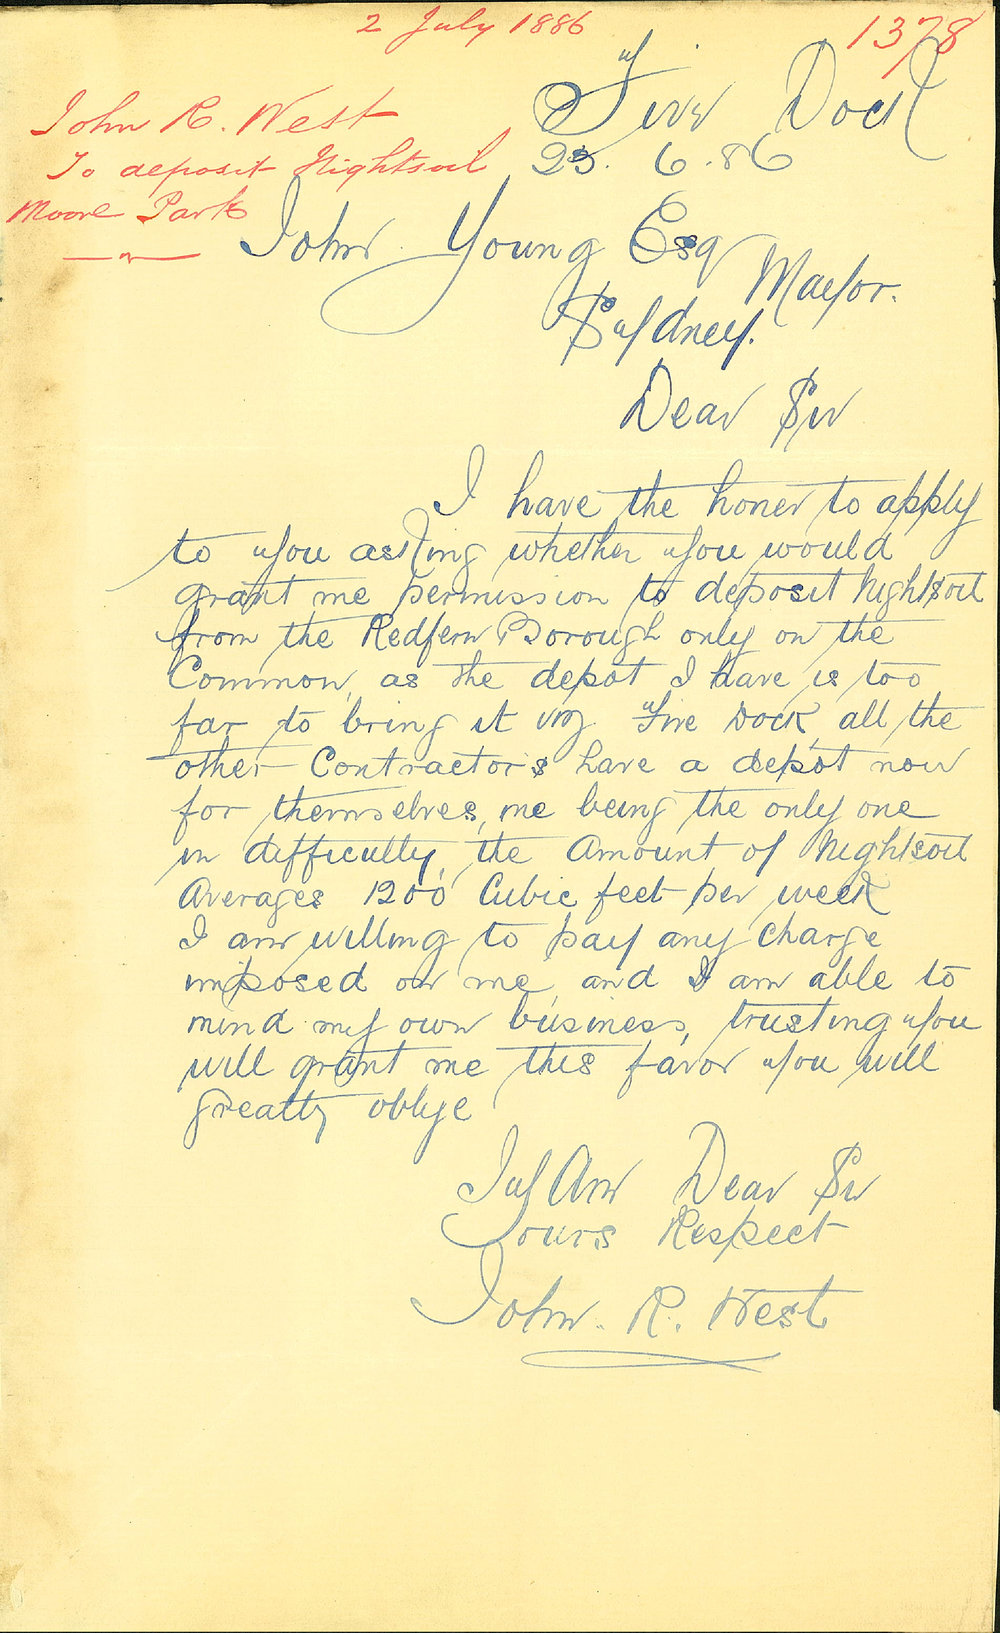 2 July 1886
1378
John R. West
To deposit Nightsoil
Moore Park
Five Dock
23. 6. 86
John Young Esq
Mayor.
Sydney.
Dear Sir
I have the honer to apply
to you asking whether you would
grant me permission to deposit Nightsoil
from the Redfern Borough only on the
Common, as the depot I have is too
far to bring it viz Five Dock, all the
other Contractors have a depot now
for themselves, me being the only one
in difficulty, the Amount of Nightsoil
Averages 1200 Cubic feet per week
I am willing to pay any charge
imposed on me, and I am able to
mind my own business, trusting you
will grant me this favor you will
greatly oblige
I Am Dear Sir
Yours Respect
John. R. West